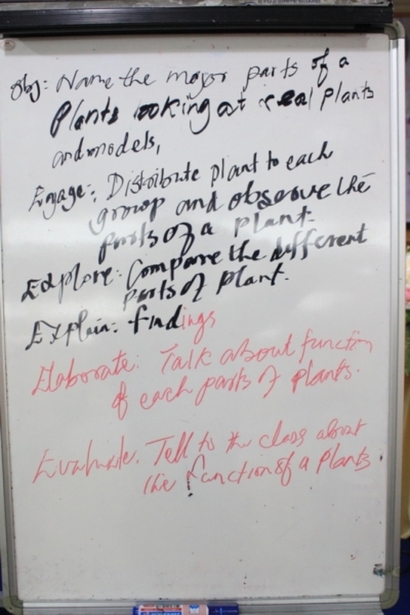 Obj: Name the major parts of a
Plants looking at real plants
and models,
Engage: Distribute plant to each
group and observe the
parts of a plant.
Explore: Compare the different
parts of plant.
Explain: findings
Elaborate: Talk about function
of each parts of plants.
Evaluate. Tell to the class about
the function of a plants